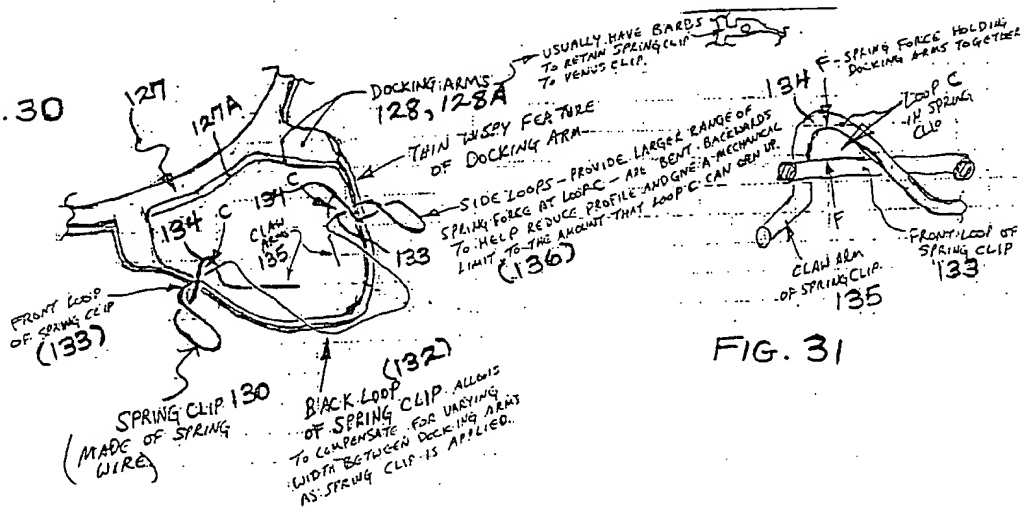 .30
127
127A
DOCKING ARMS
128, 128A
USUALLY HAVE BARBS
TO RETAIN SPRING CLIP
TO VENUS CLIP.
THIN WISPY FEATURE
OF DOCKING ARM
SIDE LOOPS - PROVIDE LARGER RANGE OF
SPRING FORCE AT LOOP C - ARE BENT BACKWARDS
TO HELP REDUCE PROFILE AND GIVE A MECHANICAL
LIMIT TO THE AMOUNT THAT LOOP C CAN OPEN UP.
(136)
134
C
134
C
CLAW
ARMS
135
133
FRONT LOOP
OF SPRING CLIP
(133)
SPRING CLIP 130
(MADE OF SPRING
WIRE)
BACK LOOP (132)
OF SPRING CLIP ALLOWS
TO COMPENSATE FOR VARYING
WIDTH BETWEEN DOCKING ARMS
AS SPRING CLIP IS APPLIED.
F - SPRING FORCE HOLDING
DOCKING ARMS TOGETHER
134
LOOP C
IN SPRING
CLIP
F
CLAW ARM
OF SPRING CLIP
135
FRONT LOOP OF
SPRING CLIP
133
FIG. 31